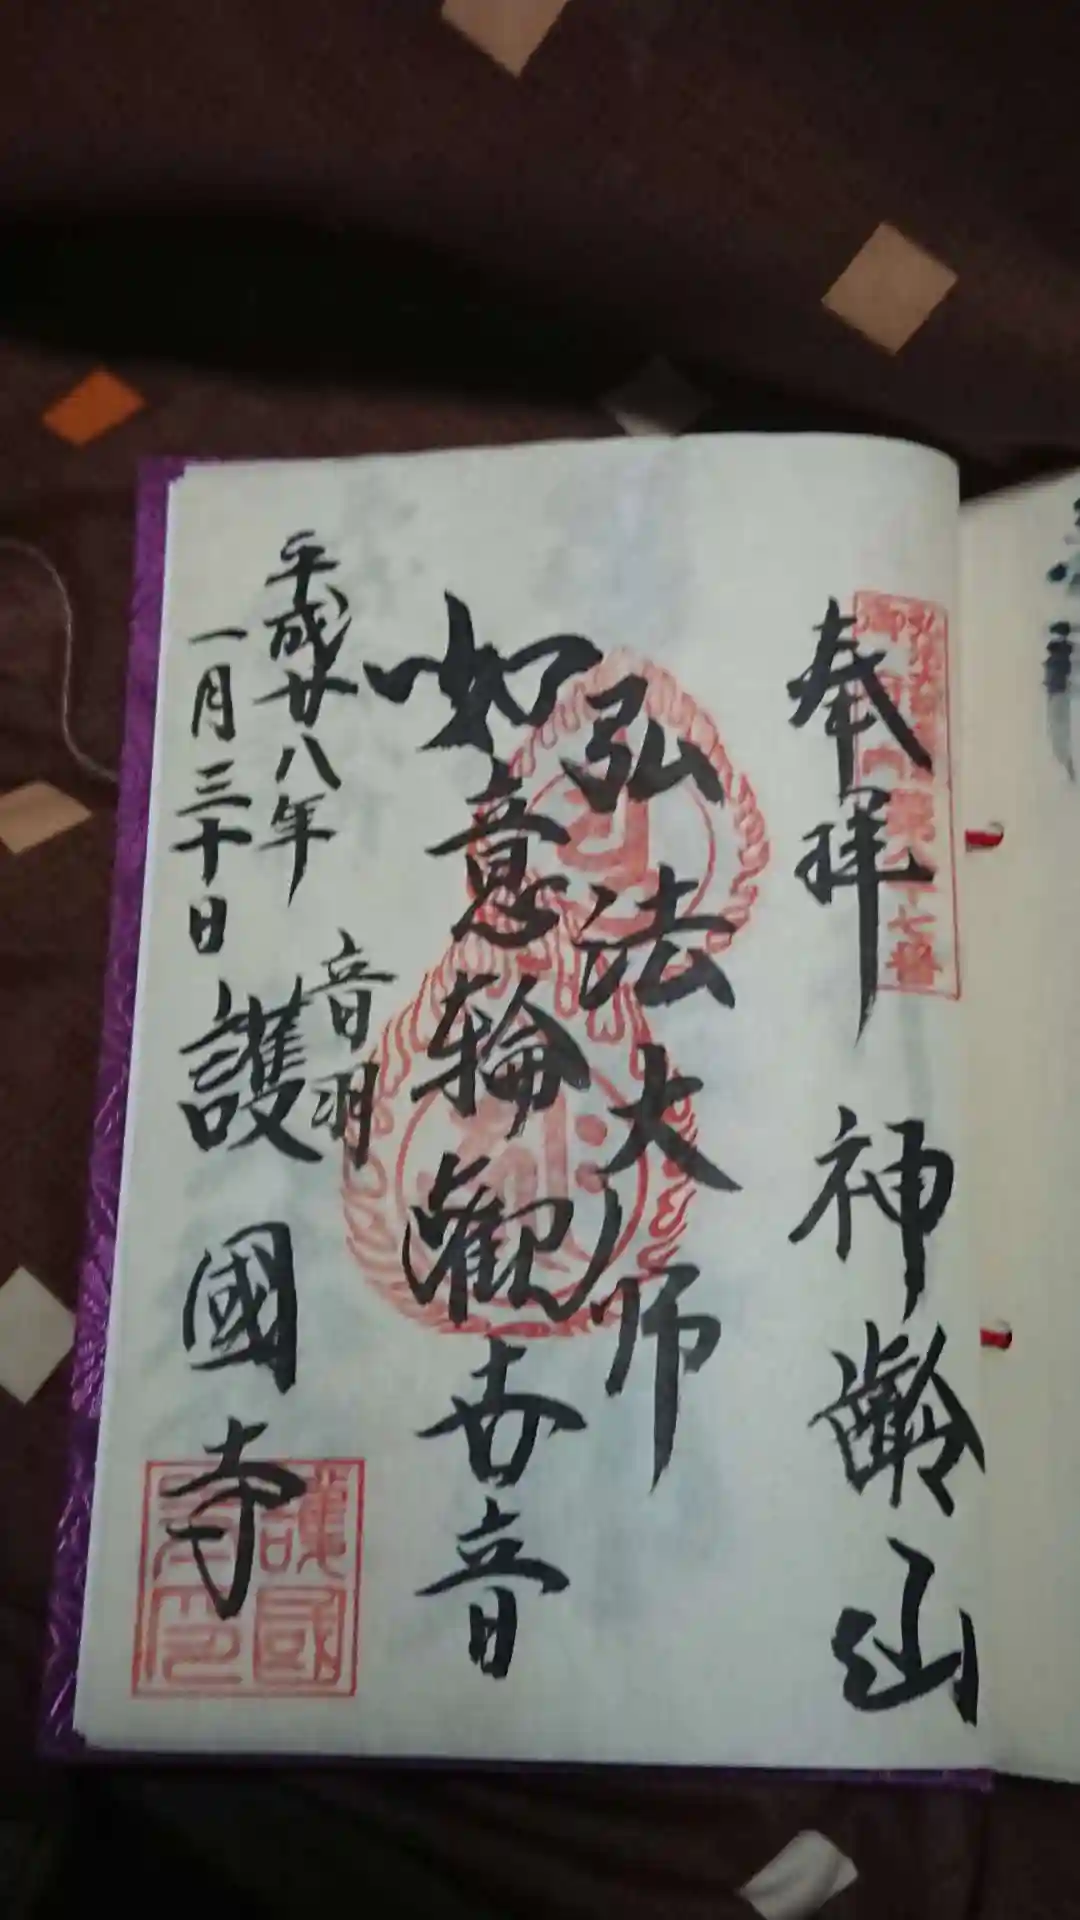 奉拝 神齢山
弘法大師
如意輪觀世音
平成廿八年
一月三十日
音羽
護國寺